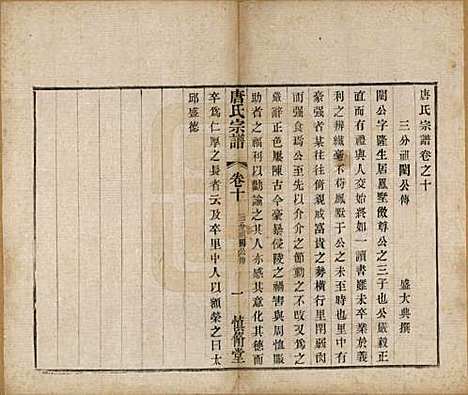 唐氏宗譜卷之十
三分祖閶公傳
盛大典撰
閶公字隆生居鳳墅傲尊公之三子也公嚴正
直而有禮與人交始終如一讀書雖未卒業於義
利之辨纖毫不苟鳳墅于公之未興時也里中有
豪強者某某往往藐視戒富貴之勢橫行里閈弱肉
強食莫恤公先以介介之節動之不改又爲
嚴辭正色屢陳古今豪暴侵陵之禍害與周恤賑
助者之福利以勸諭之其人亦感其意化其德而
卒爲仁厚之長者云及卒里中人以額榮之曰太
邱盛德
唐氏宗譜
卷十
三分祖閶公傳
一
慎脩堂